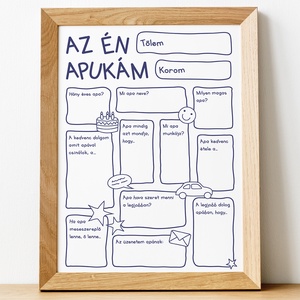 AZ ÉN
APUKÁM
Tőlem
Korom
Hány éves apa?
Mi apa neve?
Milyen magas
apa?
A kedvenc dolgom
amit apával
csinálok, a...
Apa mindig
azt mondja,
hogy...
Mi apa
munkája?
Apa kedvenc
étele a...
Apa hova szeret menni
a legjobban?
Ha apa
meseszereplő
lenne, ő lenne...
A legjobb dolog
apában, hogy...
Az üzenetem apának: